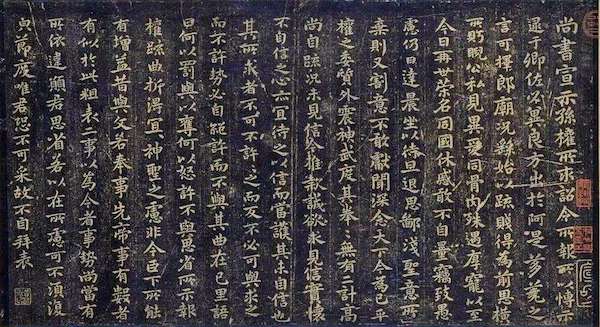 尚書宣示孫權所求詔令所報所以博示
逮于卿佐必冀良方出於阿是芻蕘之
言可擇郎廟況繇始以疏賤得為前恩橫
所盻睨公私見異愛同骨肉殊遇厚寵以至
今日再世榮名同國休慼敢不自量竊致愚
慮仍日達晨坐以待旦退思鄙淺聖意所
棄則又割意不敢獻聞深念天下今為已平
權之委質外震神武度其拳〻無有二計高
尚自疏況未見信今推款誠欲求見信實懷
不自信之心亦宜待之以信而當護其未自信也
其所求者不可不許〻之而反不必可與求之
而不許勢必自絕許而不與其曲在己里語
曰何以罰與以奪何以怒許不與思省所示報
權疏曲折得宜〻神聖之慮非今臣下所能
有增益昔與文若奉事先帝事有數者
有似於此粗表二事以為今者事勢尚當有
所依違願君思省若以在所慮可不須復
皃節度唯君恐不可采故不自拜表